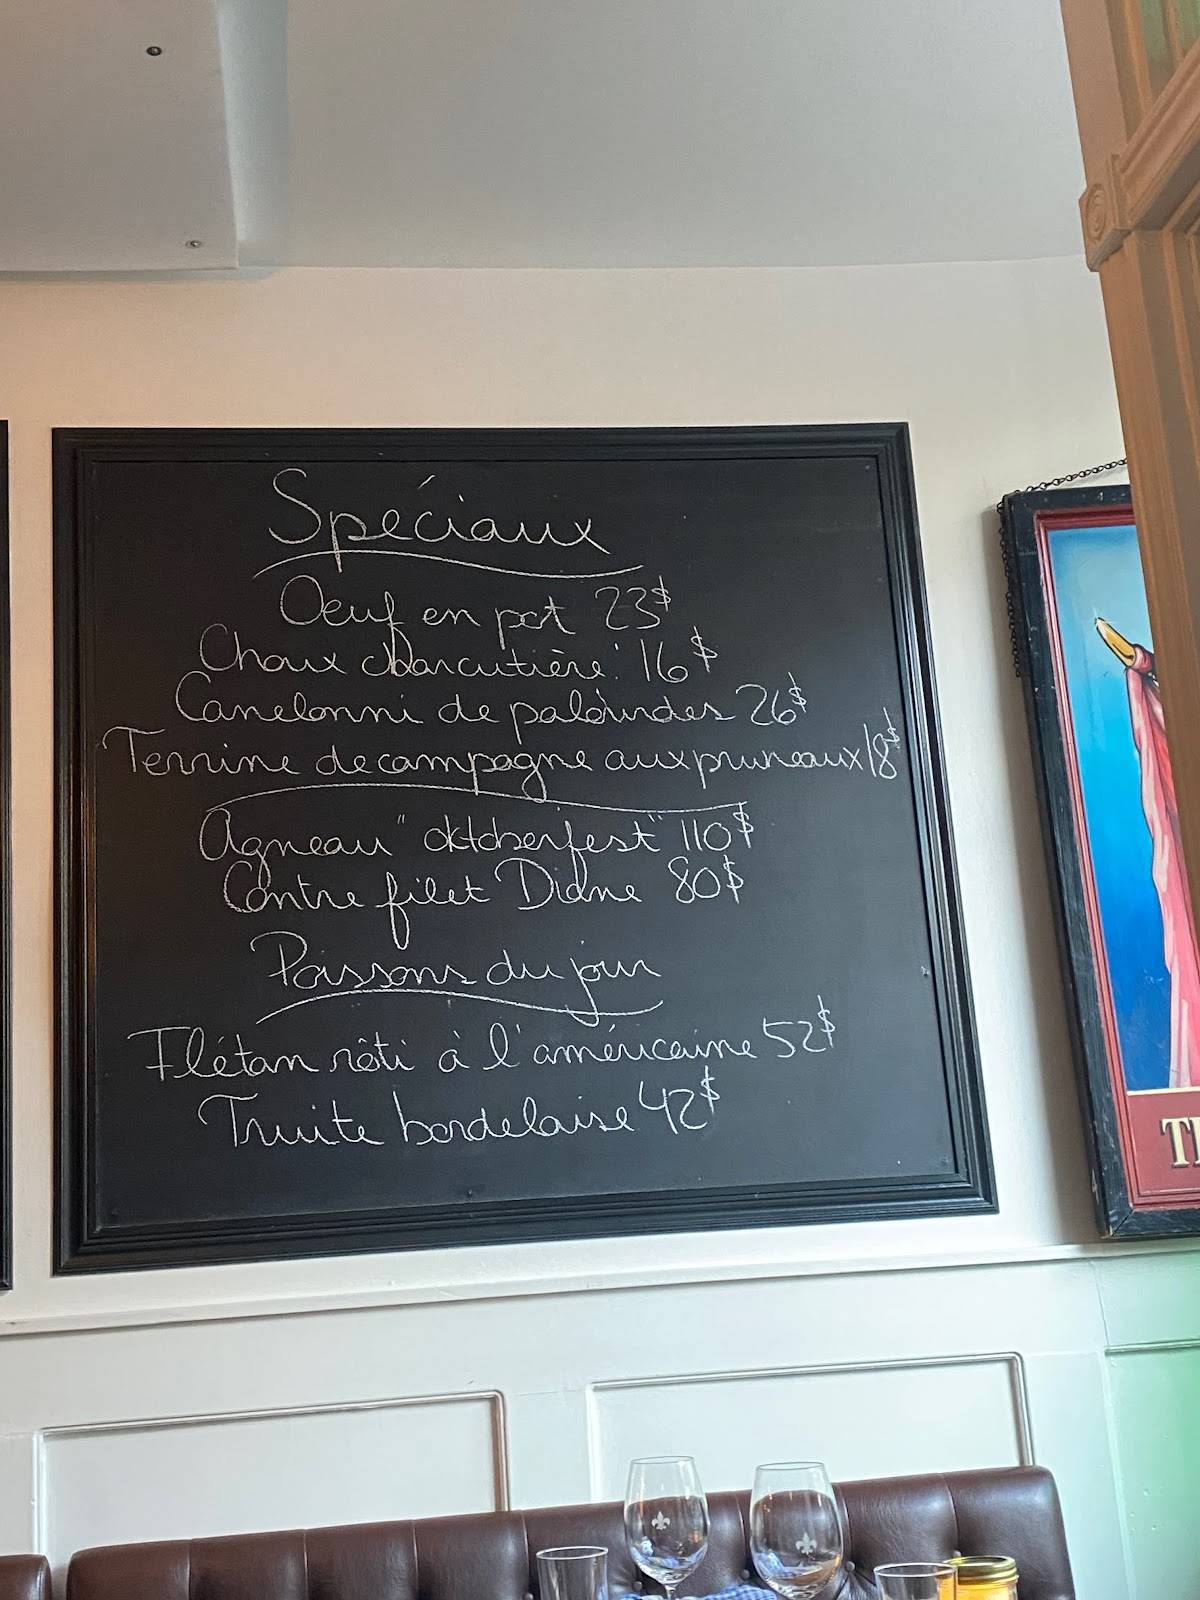 Spéciaux
Oeuf en pot 23$
Choux charcutière 16$
Canelonni de palourdes 26$
Terrine de campagne aux pruneaux 18$
Agneau "oktoberfest" 110$
Contre filet Diane 80$
Poissons du jour
Flétan rôti à l'américaine 52$
Truite bordelaise 42$